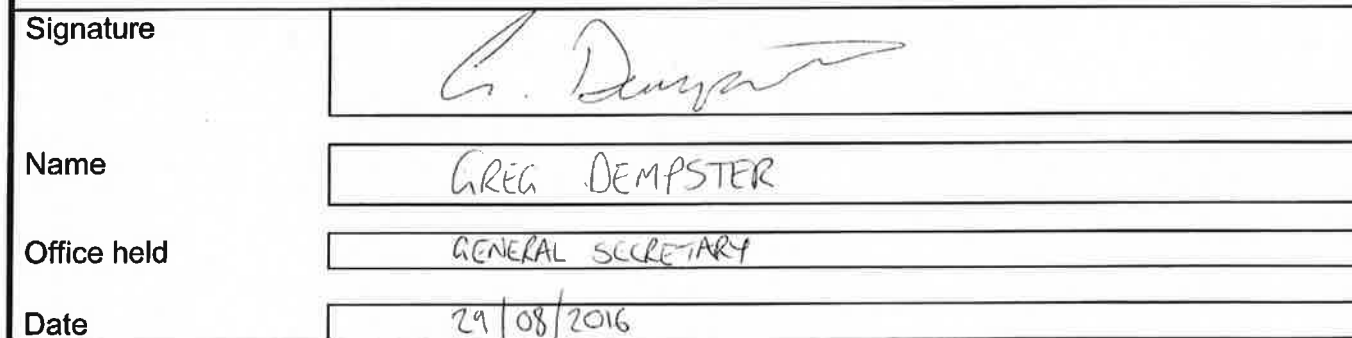 Signature G. Dempster
Name GREG DEMPSTER
Office held GENERAL SECRETARY
Date 29/08/2016